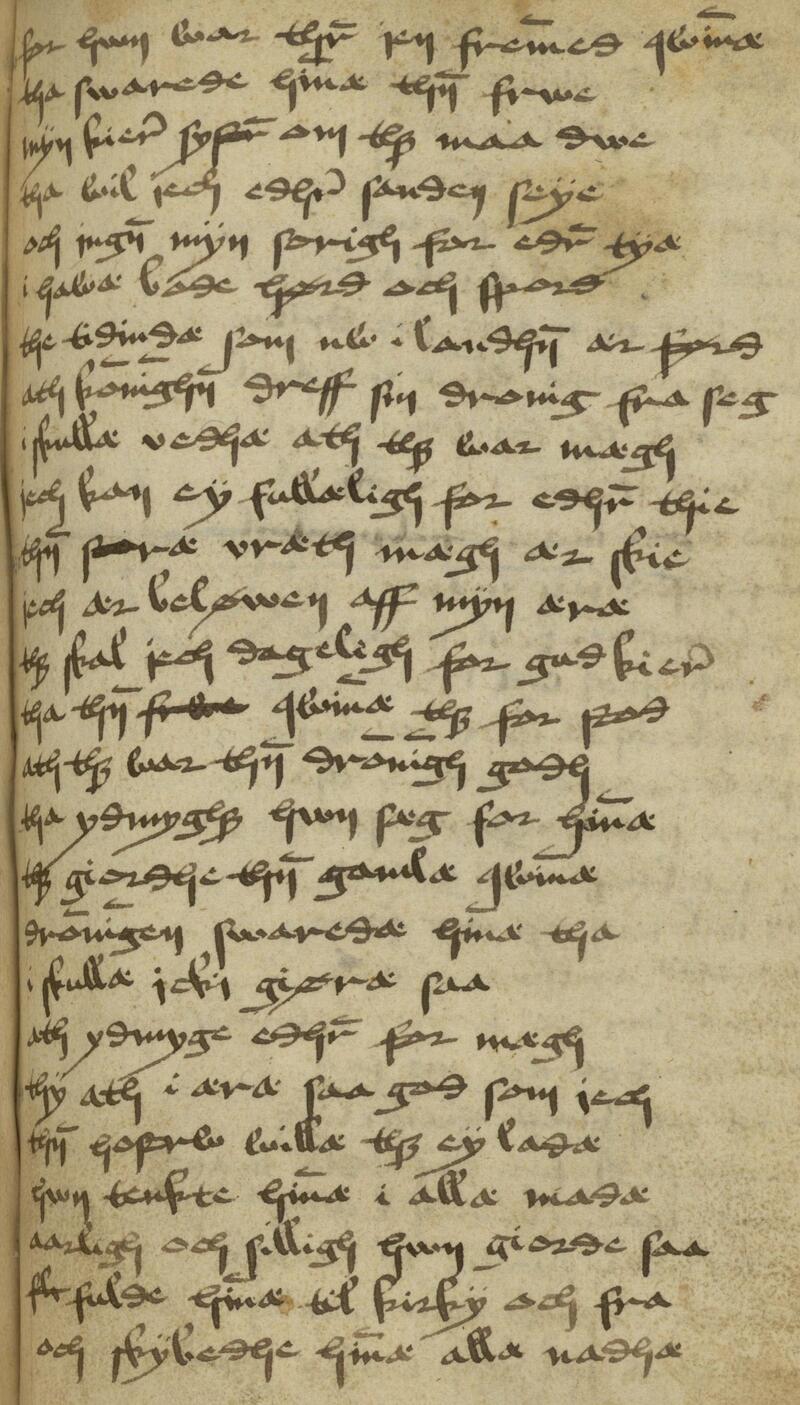 for hwn war thr̄ jen frem̄ed qwin̄æ
tha swarede hin̄æ thn̄ frwe
myn kier̄ syster̄ om thz maa dwe
tha wil jech edhr̄ sanden seye
och ingn̄ myn sorigh for edr̄ tyæ
i hawæ bode hørd och spord
the tidindæ som nw i landhn̄ ær førd
ath kon̄ighn̄ dreff sin dronig fra seg
i skullæ vedhæ ath thz war mægh
jech kan ey fullæligh for edhr̄ thie
thn̄ storæ vræth mægh ær skie
jech ær beløwen aff myn æræ
thz skal jech dageligh for gud kier̄
tha thn̄ qwin̄æ thz for stod
ath thz war thn̄ dron̄igh godh
tha ydmyghz hwn sæg for hin̄æ
thz giordhe thn̄ gamlæ qwin̄æ
dron̄igen swaredæ hin̄æ tha
i skullæ jcki giøræ saa
ath ydmyge edhr̄ for mægh
thy ath i æræ saa god som jech
thn̄ hostrw willæ thz ey ladæ
hwn tenkte hin̄æ i allæ madæ
aarligh och silligh hwn giorde saa
fulde hin̄æ til kirky och fra
och skybedhe hin̄æ allæ nadhæ